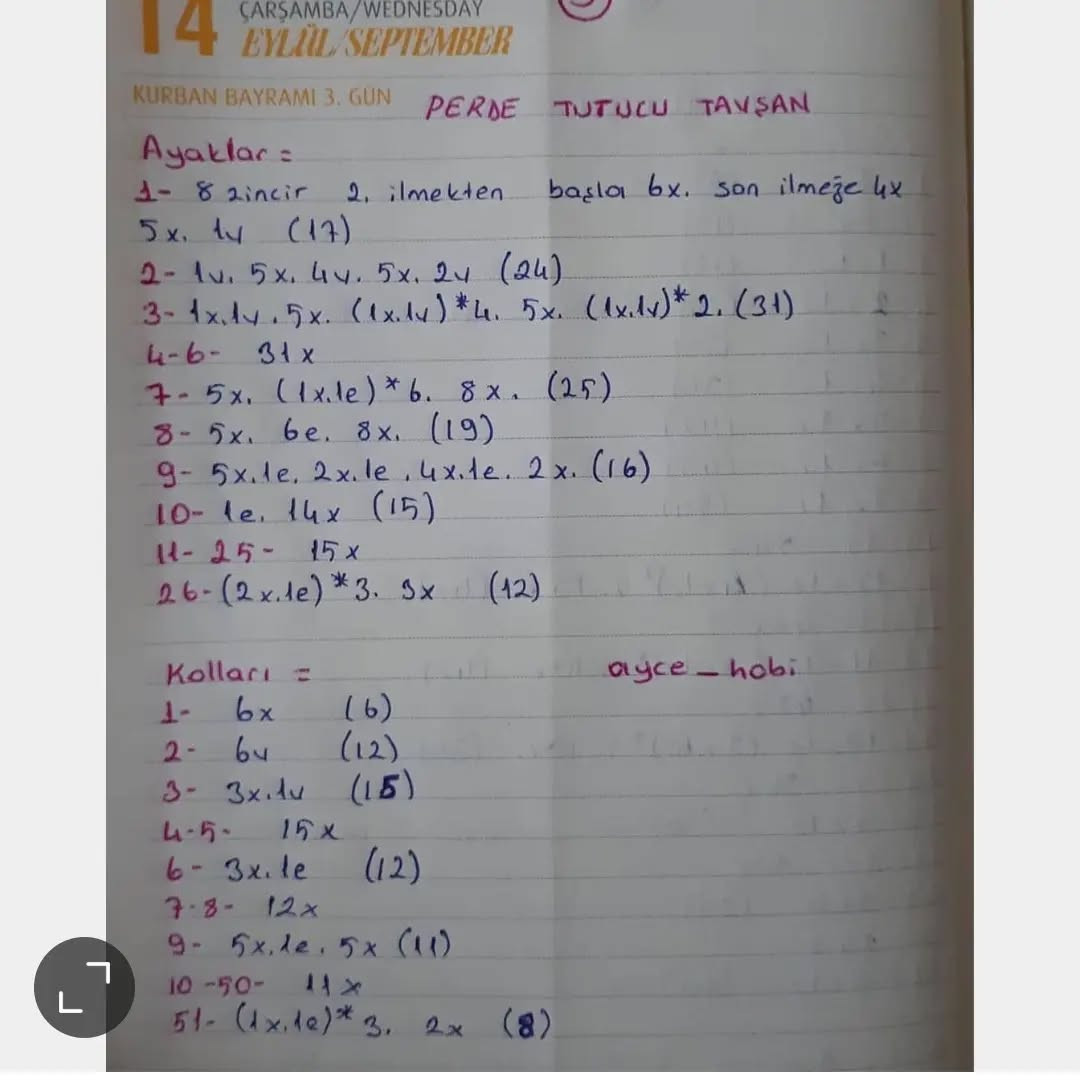 14 ÇARŞAMBA/WEDNESDAY
EYLÜL/SEPTEMBER
KURBAN BAYRAMI 3. GÜN
PERDE TUTUCU TAVŞAN
Ayaklar =
1- 8 zincir 2. ilmekten başla 6x. son ilmeğe 4x
5x. 1v (17)
2- 1v. 5x. 4v. 5x. 2v (24)
3- 1x.1v. 5x. (1x.1v)*4. 5x. (1x.1v)*2. (31)
4-6- 31x
7- 5x. (1x.1e)*6. 8x. (25)
8- 5x. 6e. 8x. (19)
9- 5x.1e. 2x.1e. 4x.1e. 2x. (16)
10- 1e. 14x (15)
11-25- 15x
26- (2x.1e)*3. 3x (12)
Kolları =
ayce_hobi
1- 6x (6)
2- 6v (12)
3- 3x.1v (15)
4-5- 15x
6- 3x.1e (12)
7-8- 12x
9- 5x.1e. 5x (11)
10-50- 11x
51- (1x.1e)*3. 2x (8)